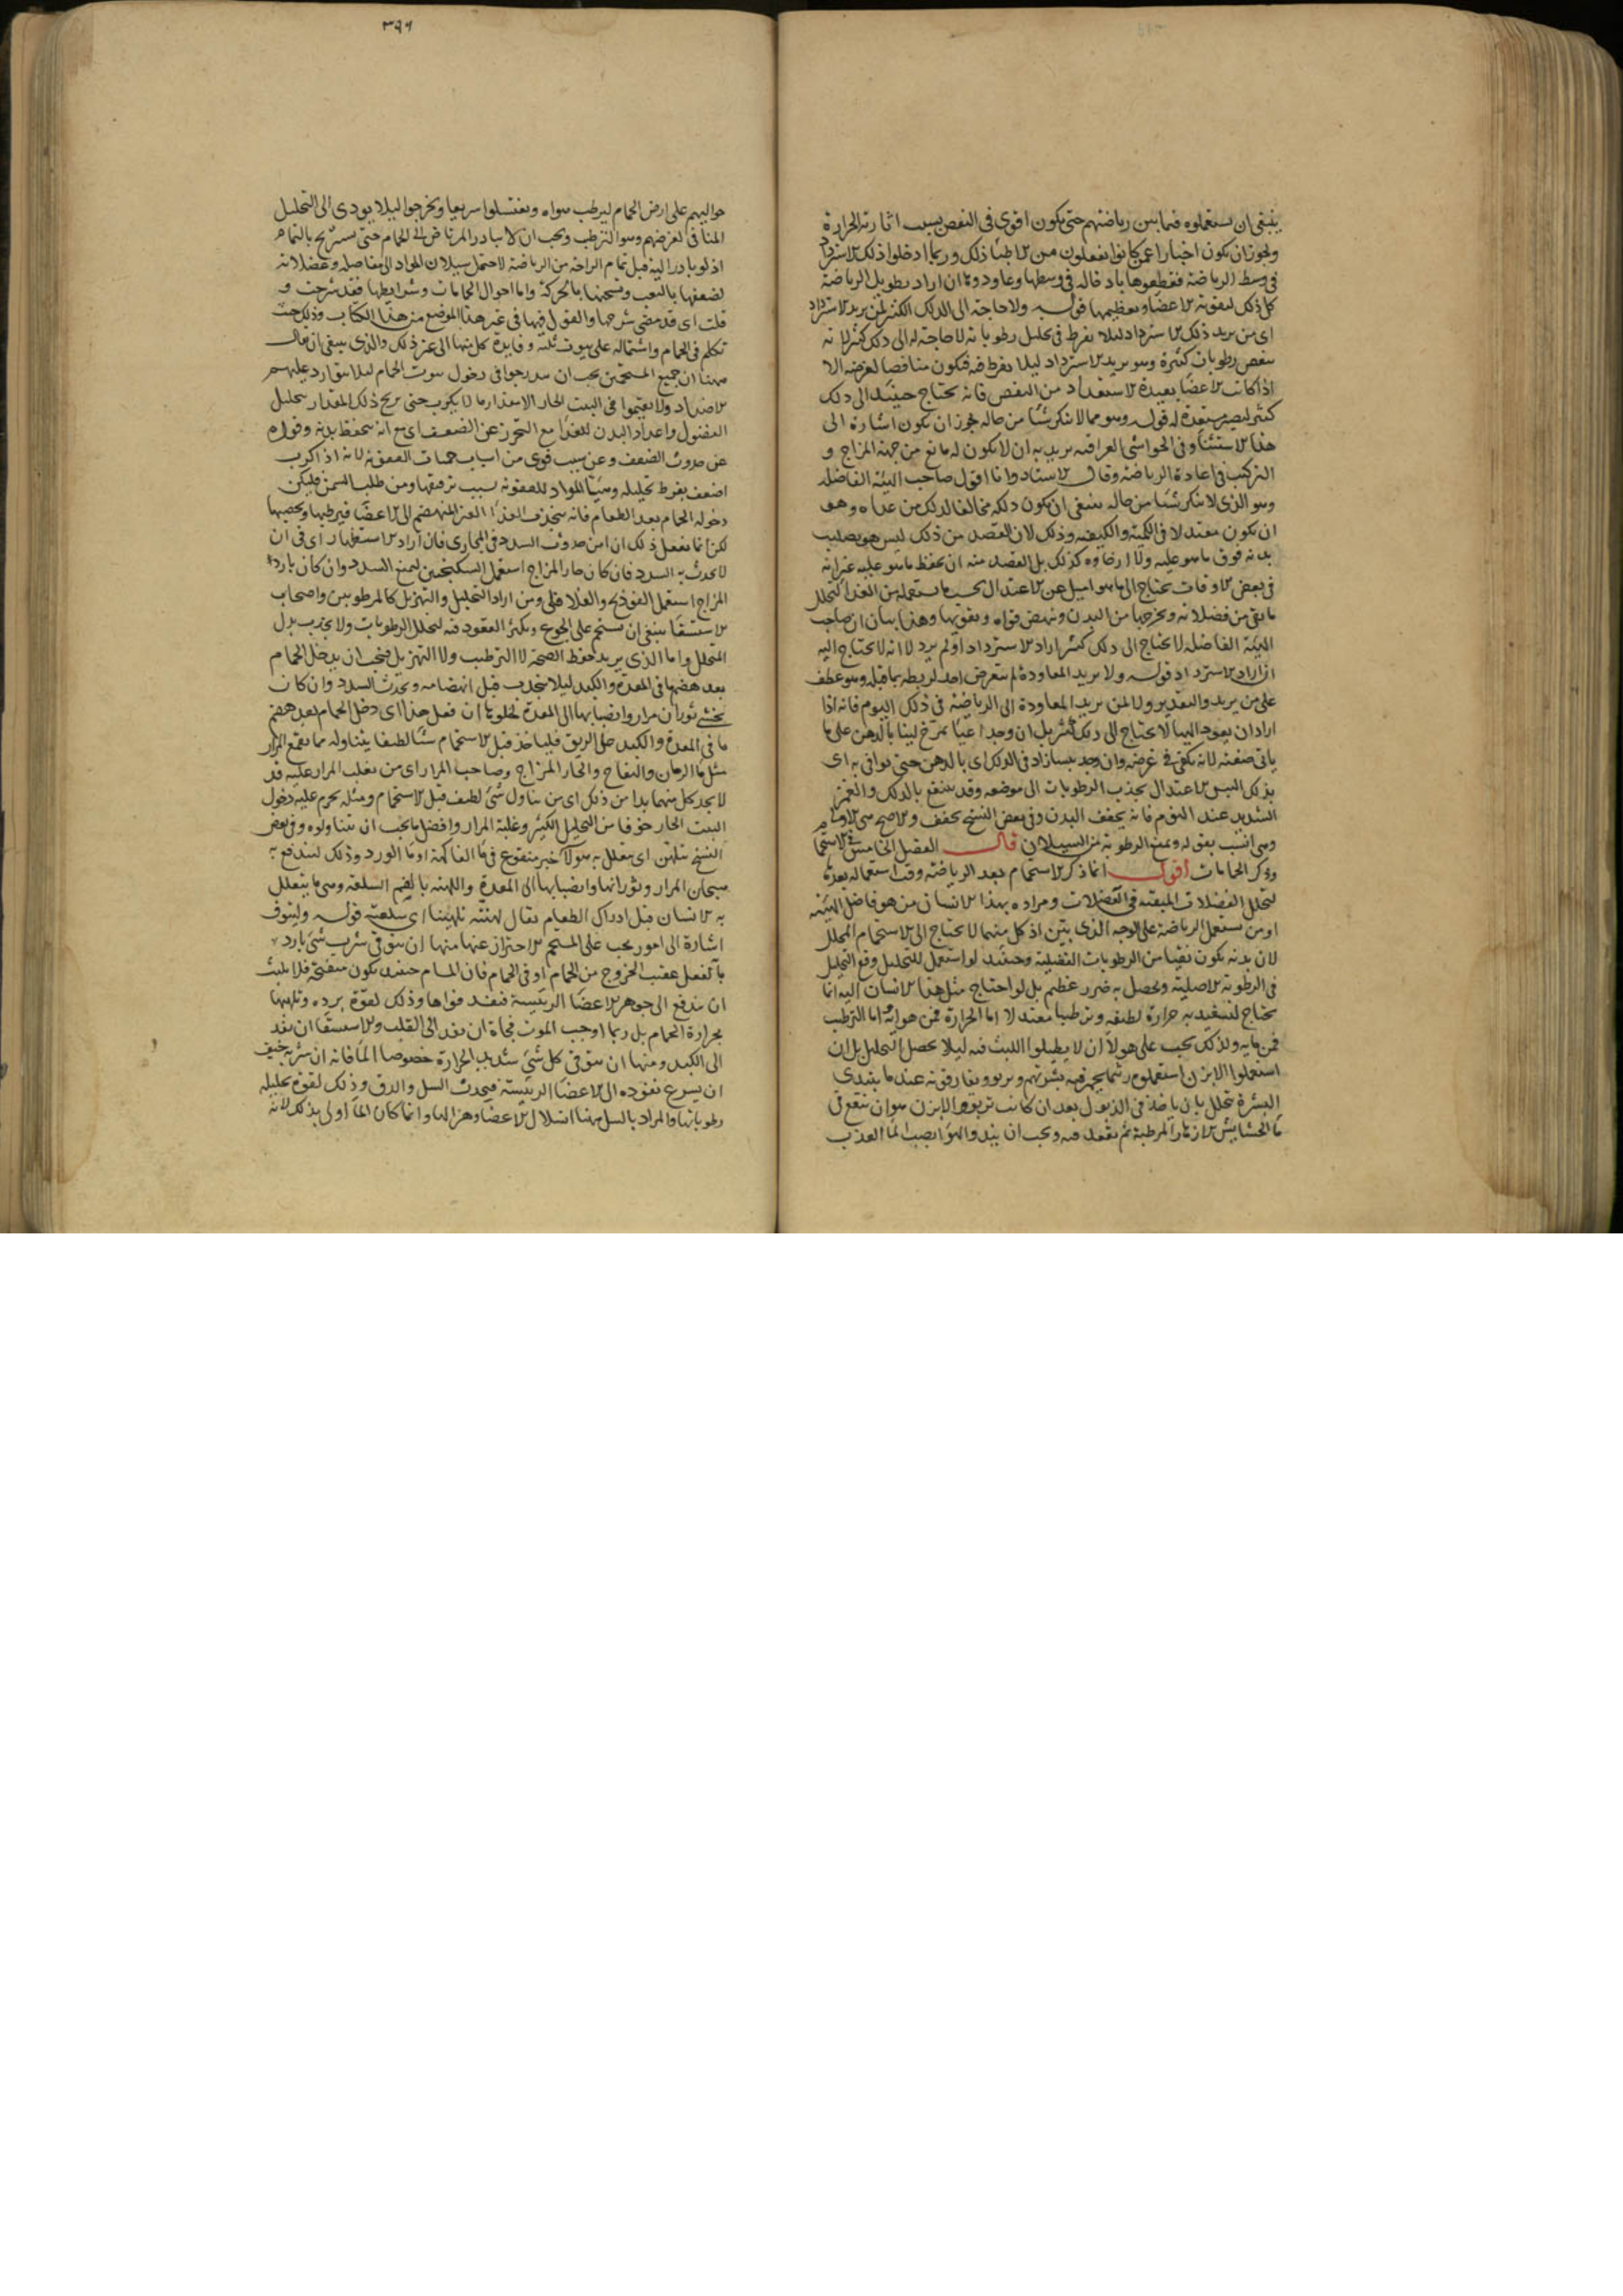 ينبغى ان يستعملوه فيما بين رياضتهم حتى يكون اقوى فى النفض بسبب اثارته الحرارة
ويجوز ان يكون اخبارا عمن كانوا يفعلون من الاطباء ذلك وربما ادخلوا ذلك الاسترداد
فى وسط الرياضة فقطعوها باد خاله فى وسطها وعاودوها ان اراد تطويل الرياضة
كل ذلك لتقوية الاعضاء وتعظيمها قوله ولا حاجة الى الدلك الكثير لمن يريد الاسترداد
اى من يريد ذلك الاسترداد ليلا يفرط فى تحليل رطوباته لا حاجة له الى دلك كثير لانه
ينفض رطوبات كثيرة وهو يريد الاسترداد ليلا يفرط فيه فيكون مناقضا لغرضه الا
اذا كانت الاعضاء بعيدة الاستعداد من النفض فانه يحتاج حينئذ الى دلك
كثير ليصير مستعدة له قوله وهو مما لا ينكر شيئا من حاله يجوز ان يكون اشارة الى
هذا الاستثناء وفى الحواشى العراقية يريد به ان لا يكون له مانع من جهة المزاج و
التركيب فى اعادة الرياضة وقال الاستاد وانا اقول صاحب البنية الفاضلة
وهو الذى لا ينكر شيئا من حاله ينبغى ان يكون دلكه مخالفا لدلك من عداه وهو
ان يكون معتدلا فى الكمية والكيفية وذلك لان القصد من ذلك ليس هو تصليب
بدنه فوق ما هو عليه ولا ارخاوه كذلك بل القصد منه ان يحفظ ما هو عليه غير انه
فى بعض الاوقات يحتاج الى ما هو اميل عن الاعتدال بحسب ما يستعمله من الغذاء لتحلل
ما بقى من فضلاته ويخرجها من البدن وينهض قواه ويقويها وهذا بيان ان صاحب
البنية الفاضلة لا يحتاج الى دلك كثير اراد الاسترداد او لم يرد لا انه لا يحتاج اليه
اذا اراد الاسترداد قوله ولا يريد المعاودة لم يتعرض احد لربطه بما قبله وهو عطف
على من يريد والتقدير ولا لمن يريد المعاودة الى الرياضة فى ذلك اليوم فانه اذا
اراد ان يعود اليها لا يحتاج الى دلك كثير بل ان وجد اعياء تمرخ لينا بالدهن على ما
ياتى صفته لانه يكفى فى غرضه وان وجد يبسا زاد فى الدلك اى بالدهن حتى يوافى به اى
بذلك اليبس الاعتدال بجذب الرطوبات الى موضعه وقد ينتفع بالدلك والغمز
الشديد عند النوم فانه يجفف البدن وفى بعض النسخ يخفف والاصح هى الاولى
وهى انسب بقوله ويمنع الرطوبة عن السيلان قال الفصل الخامس فى الاستحمام
وذكر الحمامات اقول انما ذكر الاستحمام بعد الرياضة وقت استعماله بعدها
لتحلل الفضلات المتبقية فى العضلات ومراده بهذا الانسان من هو فاضل البنية
او من يستعمل الرياضة على الوجه الذى بين اذ كل منهما لا يحتاج الى الاستحمام المحلل
لان بدنه يكون نقيا من الرطوبات الفضلية وحينئذ لو استعمل للتحليل وقع التحليل
فى الرطوبة الاصلية ويحصل به ضرر عظيم بل لو احتاج مثل هذا الانسان اليه انما
يحتاج ليستفيد به حرارة لطيفة وترطيبا معتدلا اما الحرارة فمن هوائه واما الترطيب
فمن مايه ولذلك يجب على هولاء ان لا يطيلوا اللبث فيه ليلا يحصل التحليل بل ان
استعملوا الابزن استعملوه ريثما يحمر فيه بشرتهم ويربو ويفارقونه عند ما يبتدى
البشرة تتحلل بان ياخذ فى الذبول بعد ان كانت تربو والابزن هو ان ينقع فى
ماء الحشايش الازهار المرطبة ثم يقعد فيه ويجب ان يندوا الهواء بصب الماء العذب
٣٩٦
حواليهم على ارض الحمام ليرطب هواه ويغتسلوا سريعا ويخرجوا ليلا يودى الى التحليل
المنافى لغرضهم وهو الترطب ويجب ان لا يبادر المرتاض الى الحمام حتى يستريح بالتمام
اذ لو بادر اليه قبل تمام الراحة من الرياضة لاحتمل سيلان المواد الى مفاصله وعضلاته
لضعفها بالتعب وتسخنها بالحركة واما احوال الحمامات وشرايطها فقد شرحت و
قلت اى قد مضى شرحها والقول فيها فى غير هذا الموضع من هذا الكتاب وذلك حيث
تكلم فى الحمام واشتماله على بيوت ثلثة وفايدة كل منها الى غير ذلك والذى ينبغى ان يقال
ههنا ان جميع المستحمين يجب ان يتدرجوا فى دخول بيوت الحمام ليلا يتوارد عليهم
الاضداد ولا يقيموا فى البيت الحار الا مقدار ما لا يكرب حتى يربح ذلك المقدار بتحليل
الفضول واعداد البدن للغذاء مع التحرز عن الضعف اى مع انه يتحفظ بدنه وقواه
عن حدوث الضعف وعن سبب قوى من اسباب حميات العفونة لانه اذا كرب
اضعف بفرط تحليله وهيأ المواد للعفونة بسبب ترقيقها ومن طلب السمن فليكن
دخوله الحمام بعد الطعام فانه ينجذب الغذاء الغير المنهضم الى الاعضاء فيرطبها ويخصبها
لكن انما يفعل ذلك ان امن حدوث السدد فى المجارى فان اراد الاستظهار اى فى ان
لا يحدث به السدد فان كان حار المزاج استعمل السكنجبين ليمنع السدد وان كان بارد
المزاج استعمل الفوذنجى والفلافلى ومن اراد التحليل والتهزيل كالمرطوبين واصحاب
الاستسقاء ينبغى ان يستحم على الجوع ويكثر القعود فيه لتحلل الرطوبات ولا يجذب بدل
المتحلل واما الذى يريد حفظ الصحة لا الترطيب ولا التهزيل فيجب ان يدخل الحمام
بعد هضم ما فى المعدة والكبد ليلا ينجذب قبل انهضامه ويحدث السدد وان كان
يخشى ثوران مرار وانصبابها الى المعدة لخلوها ان فعل هذا اى دخل الحمام بعد هضم
ما فى المعدة والكبد على الريق فلياخذ قبل الاستحمام شيئا لطيفا يتناوله مما يقمع المرار
مثل ماء الرمان والتفاح والحار المزاج وصاحب المرار اى من يغلب المرار عليه قد
لا يجد كل منهما بدا من ذلك اى من تناول شىء لطيف قبل الاستحمام ومثله يحرم عليه دخول
البيت الحار خوفا من التحليل الكثير وغلبة المرار وافضل ما يجب ان يتناولوه وفى بعض
النسخ يتلهن اى يتعلل به هولاء خبز منقوع فى ماء الفاكهة او ماء الورد وذلك ليندفع به
هيجان المرار وثورانها وانصبابها الى المعدة واللهنة بالضم السلفة وهى ما يتعلل
به الانسان قبل ادراك الطعام يقال لهنته تلهينا اى سلفته قوله وليتوق
اشارة الى امور يجب على المستحم الاحتراز عنها منها ان يتوقى شرب شىء بارد
بالفعل عقيب الخروج من الحمام او فى الحمام فان المسام حينئذ يكون منفتحة فلا يلبث
ان يندفع الى جوهر الاعضاء الرئيسة فيفسد قواها وذلك لقوة برده وتلهبها
بحرارة الحمام بل ربما اوجب الموت فجاة ان نفذ الى القلب والاستسقاء ان نفذ
الى الكبد ومنها ان يتوقى كل شىء شديد الحرارة خصوصا الماء فانه ان شربه خيف
ان يسرع نفوذه الى الاعضاء الرئيسة فيحدث السل والدق وذلك لقوة تحليله
رطوباتها والمراد بالسل ههنا انسلال الاعضاء وهزالها وانما كان الماء اولى بذلك لانه